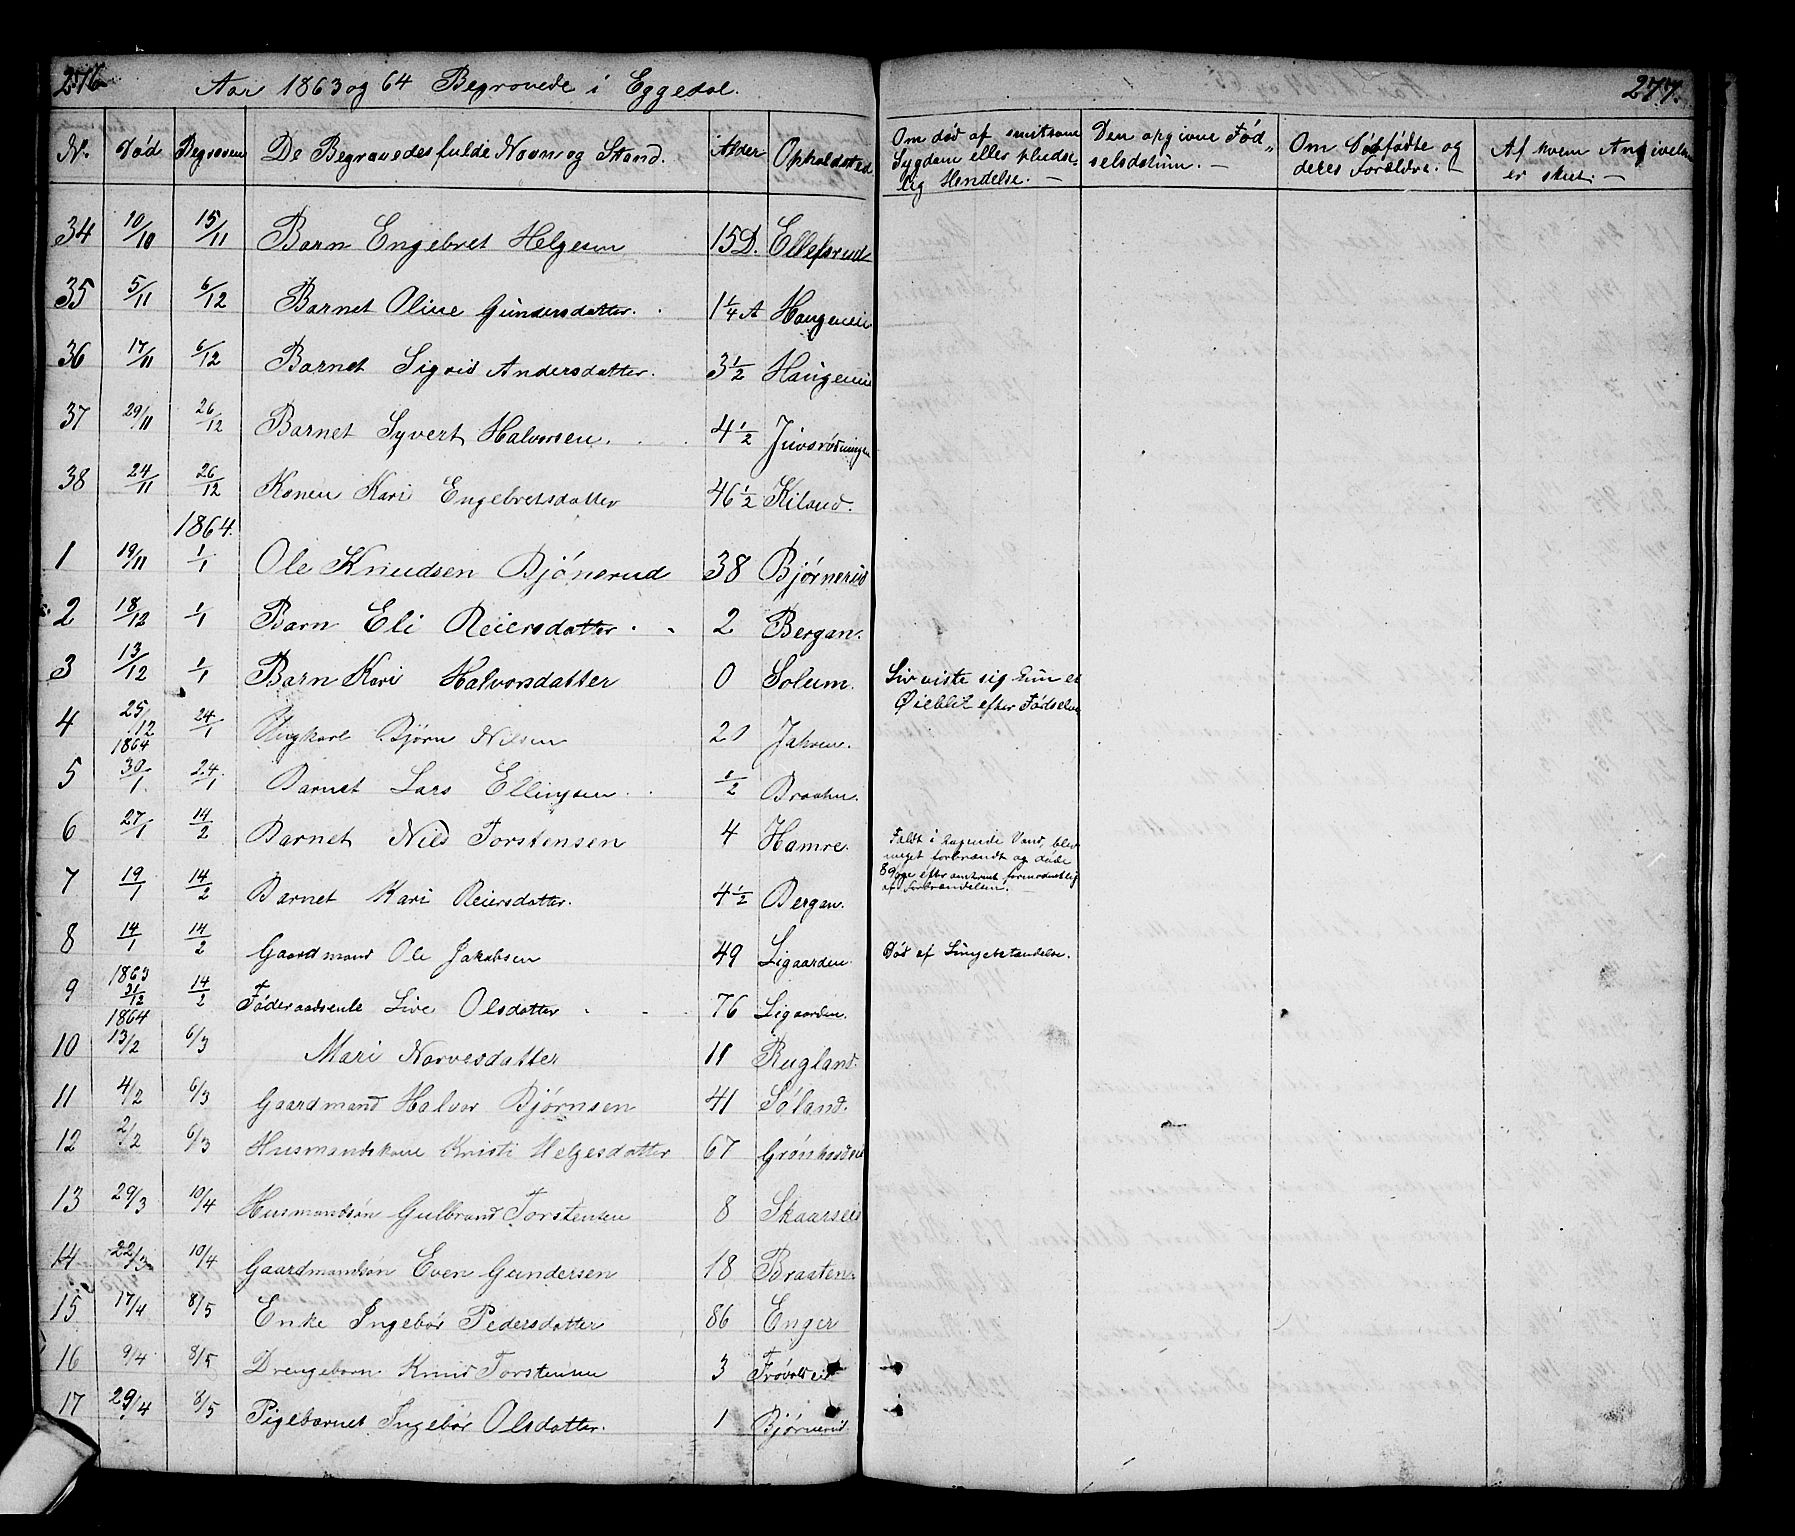 276
Aar 1863 og 64 Begravede i Eggedal.
277.
N. Død Begraven De Begravedes fulde Navn og Stand. Alder Opholdssted
Om død af smitsom Sygdom eller pludselig Hendelse. —
Den opgivne Fødselsdatum. —
Om Dødfødte og deres Forældre. —
Af hvem Angivelsen er skeet. —
34 10/10 15/11 Barn Engebret Helgesen 15 D. Ellefsrud
35 5/11 6/12 Barnet Oline Gundersdatter. 1 1/4 A Haugeneie
36 17/11 6/12 Barnet Sigrid Andersdatter. 3 1/2 Haugeneie
37 29/11 26/12 Barnet Syvert Halvorsen. 4 1/2
38 24/11 26/12 Konen Kari Engebretsdatter 46 1/2 Kiland.
1864.
1 19/11 1/1 Ole Knudsen Bjönerud 38 Bjørnerud
2 18/12 1/1 Barn Eli Reiersdatter. 2 Bergan.
3 13/12 1/1 Barn Kari Halvorsdatter 0 Solum. Liv viste sig kun et
Øieblik efter Fødselen
4 25/12 24/1 Ungkarl Bjørn Nilsen 20
1864
5 30/1 24/1 Barnet Lars Ellingsen. 1/2 Braaten.
6 27/1 14/2 Barnet Nils Torstensen 4 Hamre. Faldt i kogende Vand, blev
meget forbrændt og døde
af Forbrændelsen. —
7 19/1 14/2 Barnet Kari Reiersdatter. 4 1/2 Bergan.
8 14/1 14/2 Gaardmand Ole Jakobsen 49 Ligaarden. Død af Lungebetændelse.
1863
9 31/12 14/2 Føderaadsenke Live Olsdatter 76 Ligaarden.
1864
10 13/2 6/3 Mari Narvesdatter 11 Rugland.
11 4/2 6/3 Gaardmand Halvor Bjørnsen 41 Søland.
12 2/2 6/3 Husmandskone Kristi Helgesdatter 67
13 29/3 10/4 Husmandsøn Gulbrand Torstensen 8 Skaarseie
14 22/3 10/4 Gaardmandsøn Even Gundersen 18 Braaten.
15 17/4 8/5 Enke Ingebör Pedersdatter 86 Enger
16 9/4 8/5 Drengebarn Knud Torstensen 3
17 29/4 8/5 Pigebarnet Ingebör Olsdatter. 1 Bjørnerud.